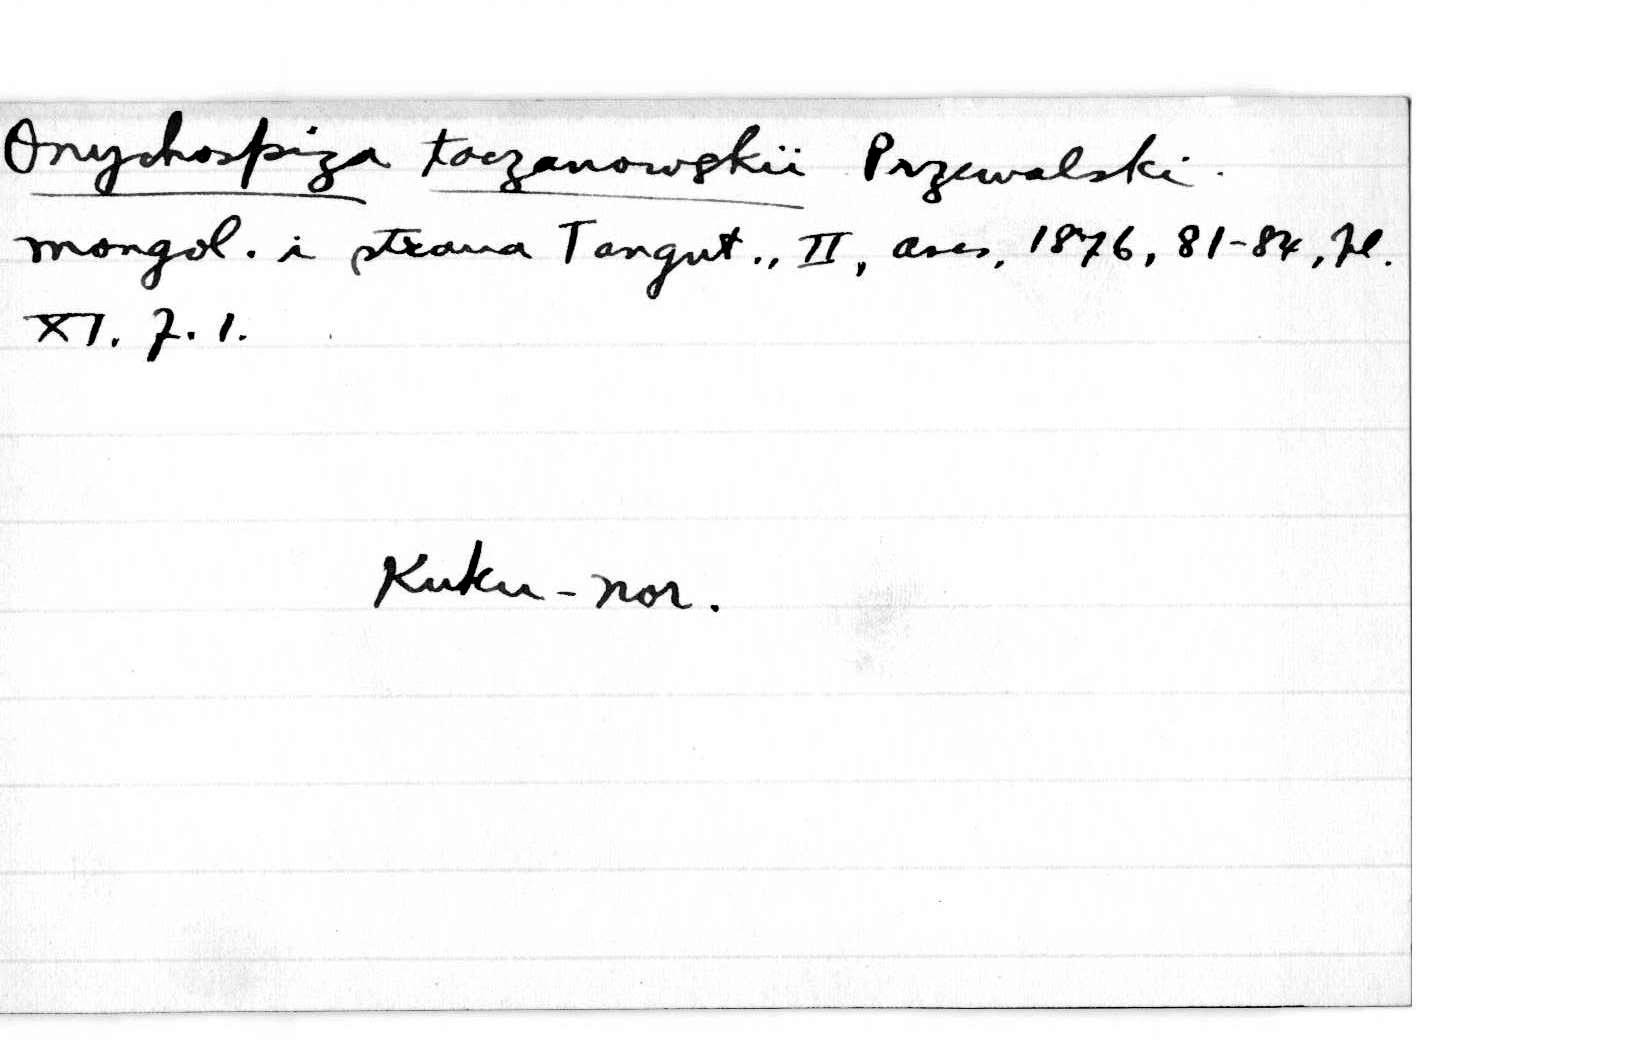 Onychospiza taczanowskii Przewalski.
Mongol. i strana Tangut., II, aves, 1876, 81-84, pl.
XI. f. 1.
Kuku-nor.